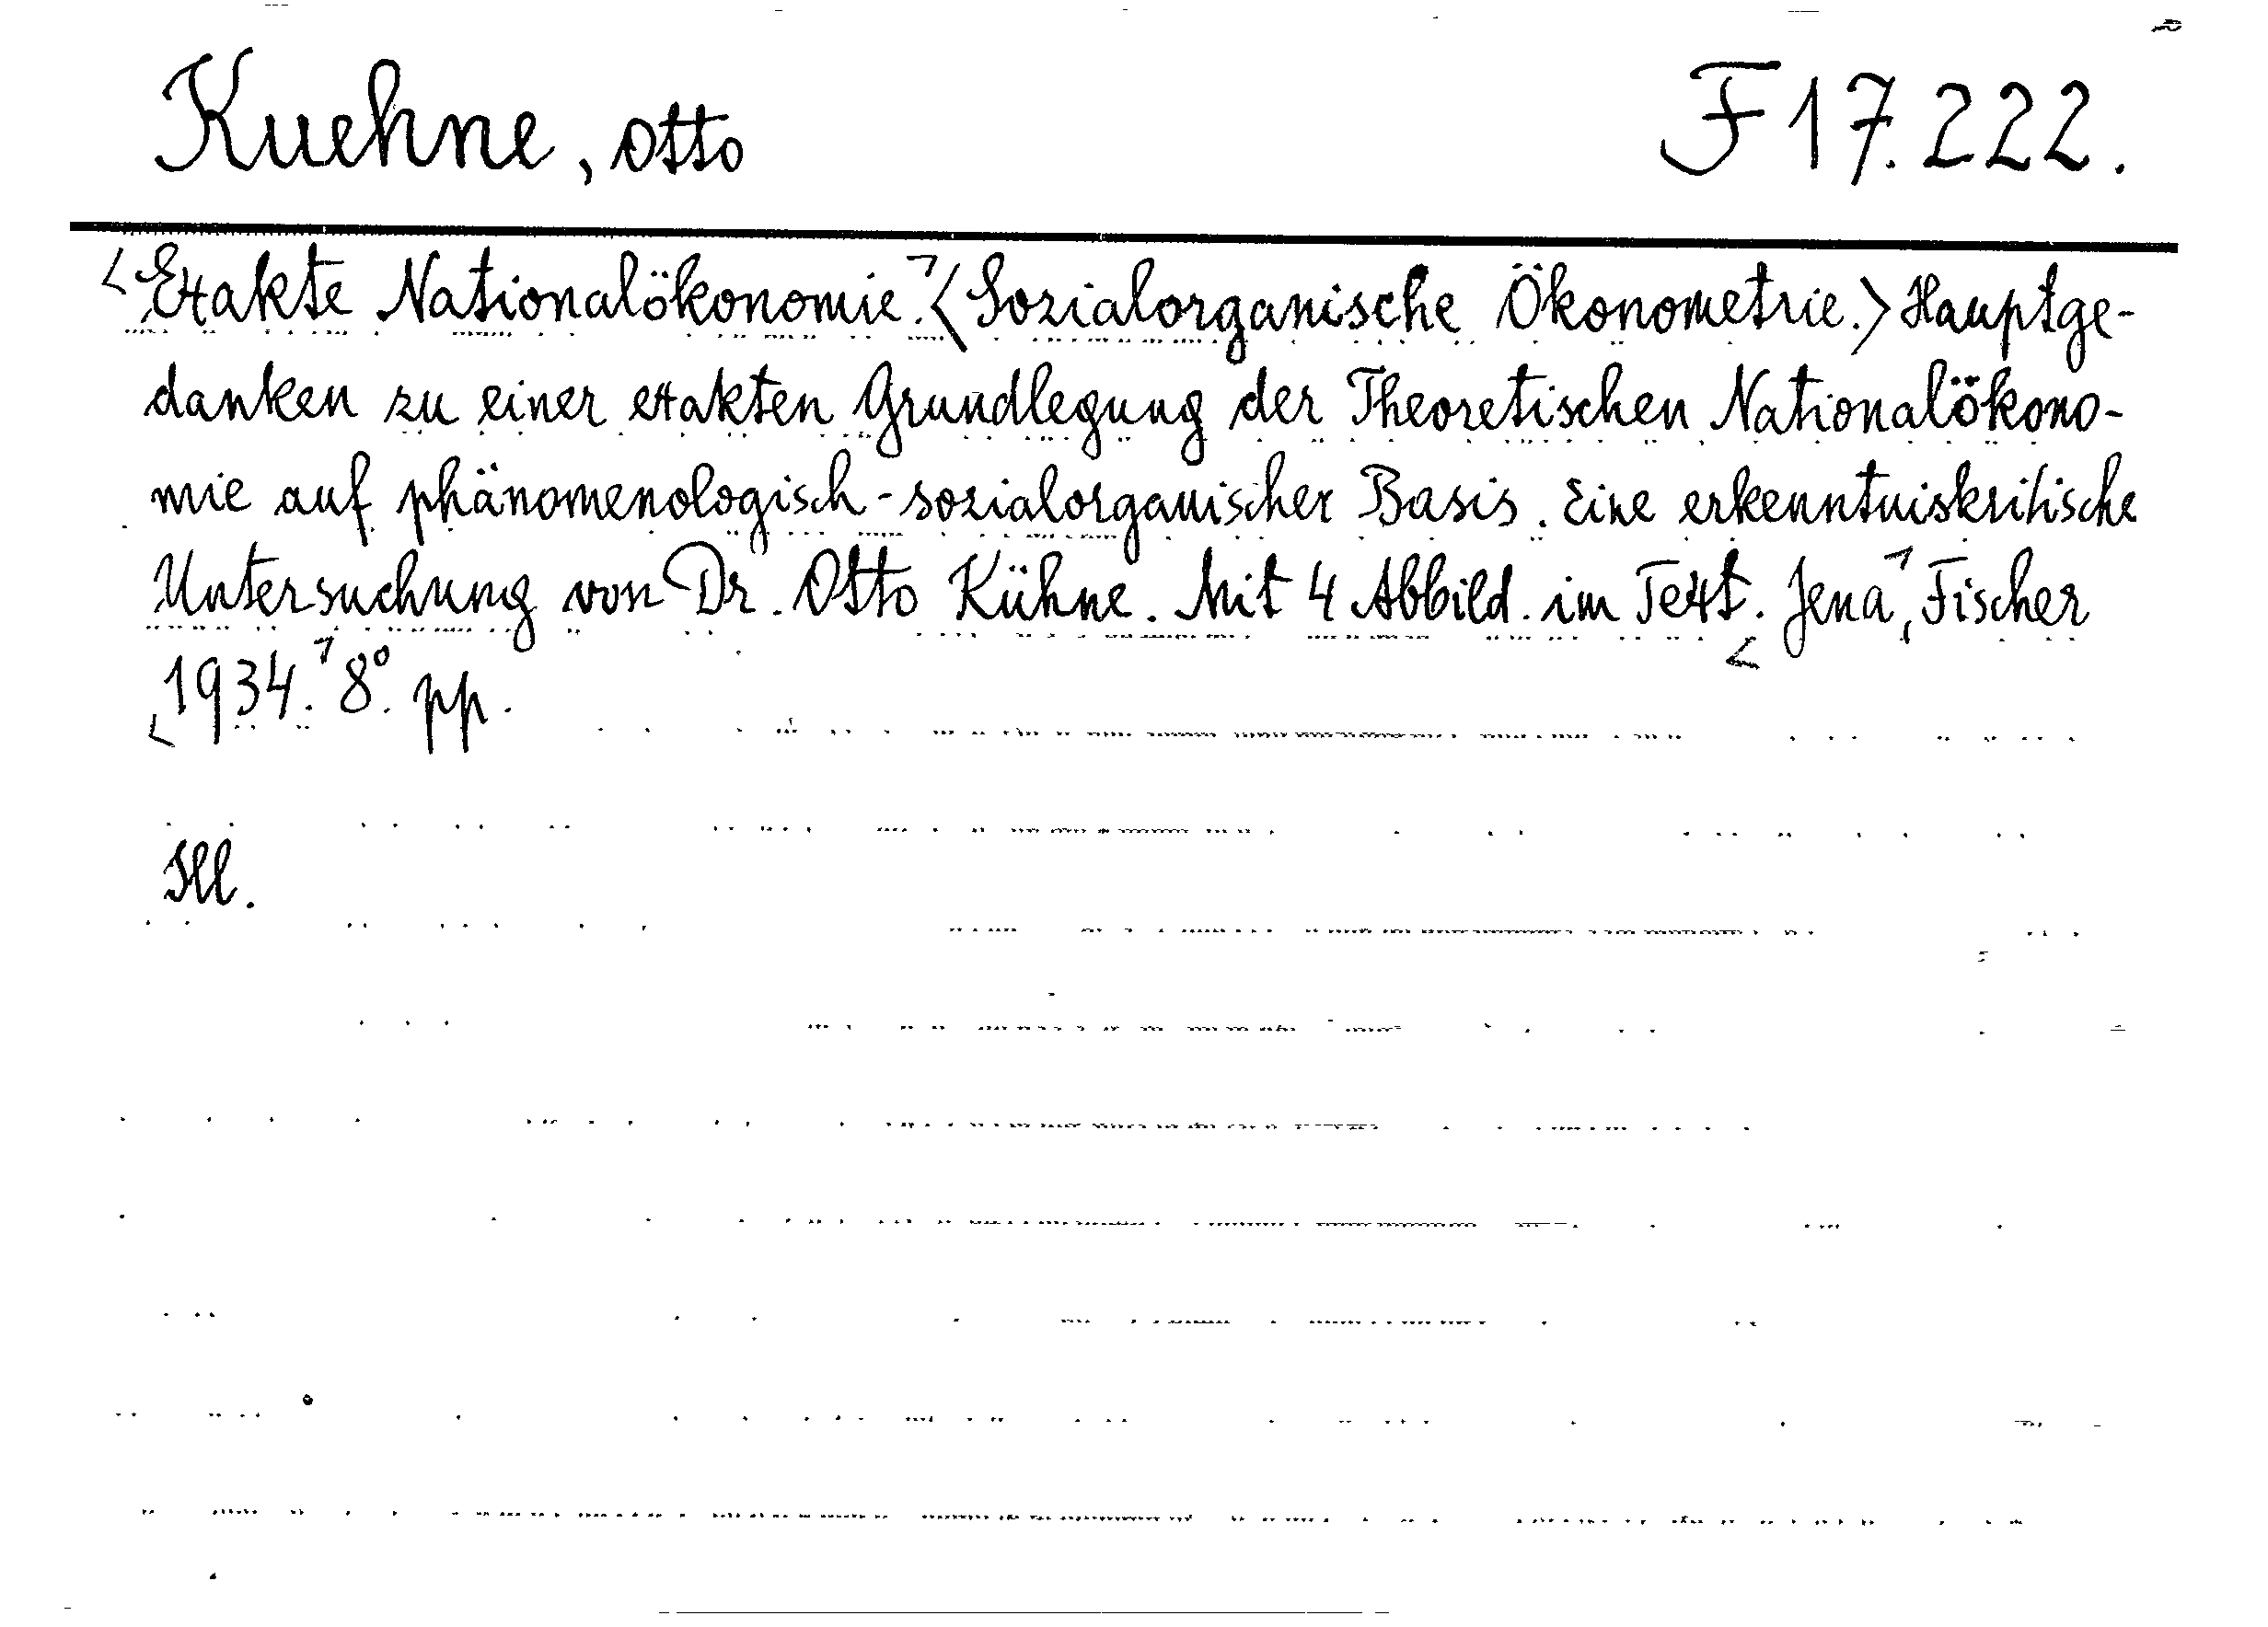 Kuehne, Otto
F 17.222.
<Exakte Nationalökonomie.> <Sozialorganische Ökonometrie.> Hauptge-
danken zu einer exakten Grundlegung der Theoretischen Nationalökono-
mie auf phänomenologisch-sozialorganischer Basis. Eine erkenntniskritische
Untersuchung von Dr. Otto Kühne. Mit 4 Abbild. im Text. <Jena>, Fischer
<1934.> 8°. pp.
Ill.